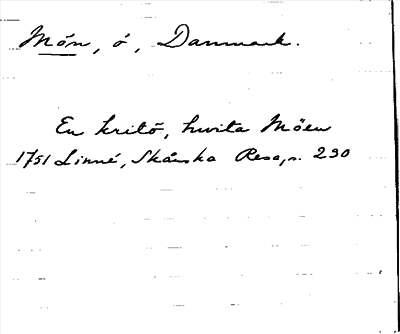 Mön, ö, Danmark.
En kritö, hvita Möen
1751 Linné, Skånska Resa, s. 230